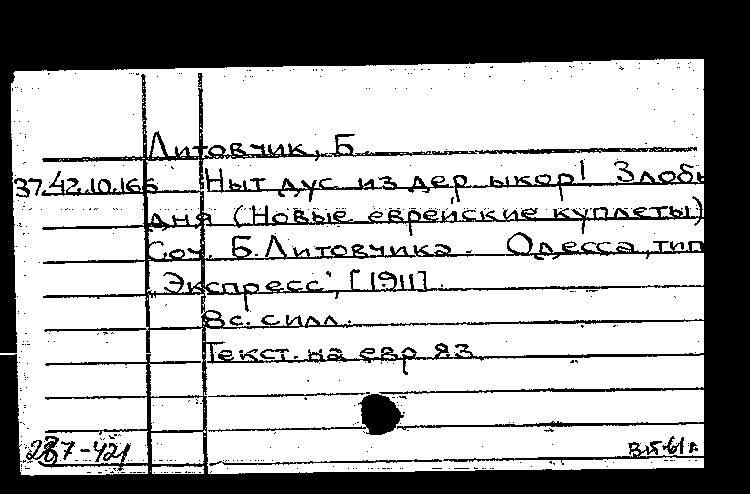 Литовчик, Б.
37.42.10.166 Ныт дус из дер ыкор! Злобы
дня (Новые еврейские куплеты)
Соч. Б. Литовчика. Одесса, тип
„Экспресс", [1911].
8с. с илл.
Текст. на евр яз.
287-421